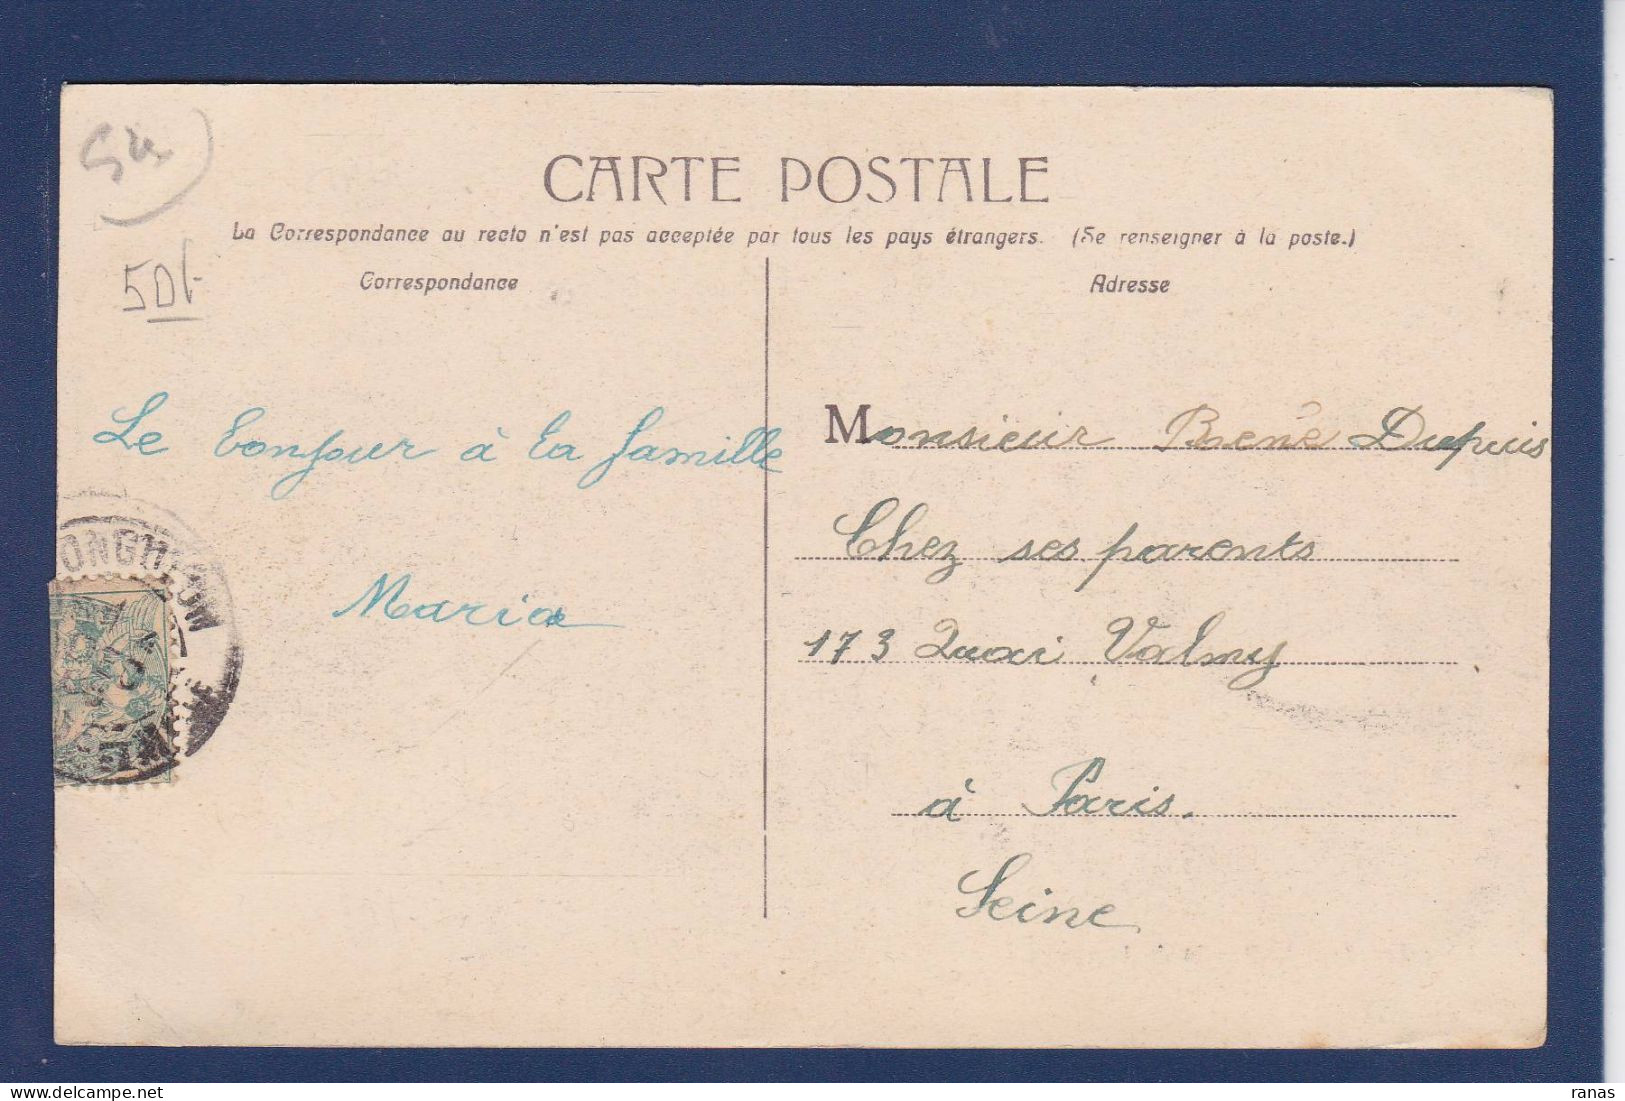 CARTE POSTALE
La Correspondance au recto n'est pas acceptée par tous les pays étrangers. (Se renseigner à la poste.)
Correspondance
Adresse
50f
Le bonjour à la famille
Maria
Monsieur René Dupuis
Chez ses parents
173 Quai Valmy
à Paris.
Seine
ranas